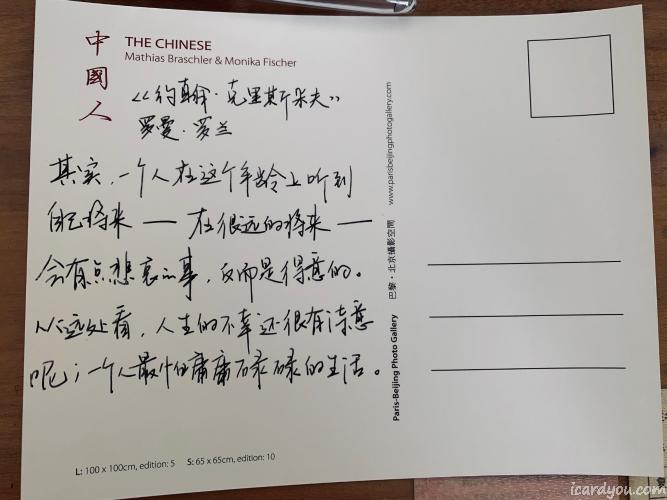 中國人
THE CHINESE
Mathias Braschler & Monika Fischer
《约翰·克里斯朵夫》
罗曼·罗兰
其实,一个人在这个年龄上听到
自己将来——在很远的将来——
会有点悲哀的事,反而是得意的。
从远处看,人生的不幸还很有诗意
呢;一个人最怕庸庸碌碌的生活。
L: 100 x 100cm, edition: 5 S: 65 x 65cm, edition: 10
Paris-Beijing Photo Gallery 巴黎·北京攝影空間 www.parisbeijingphotogallery.com
icardyou.com